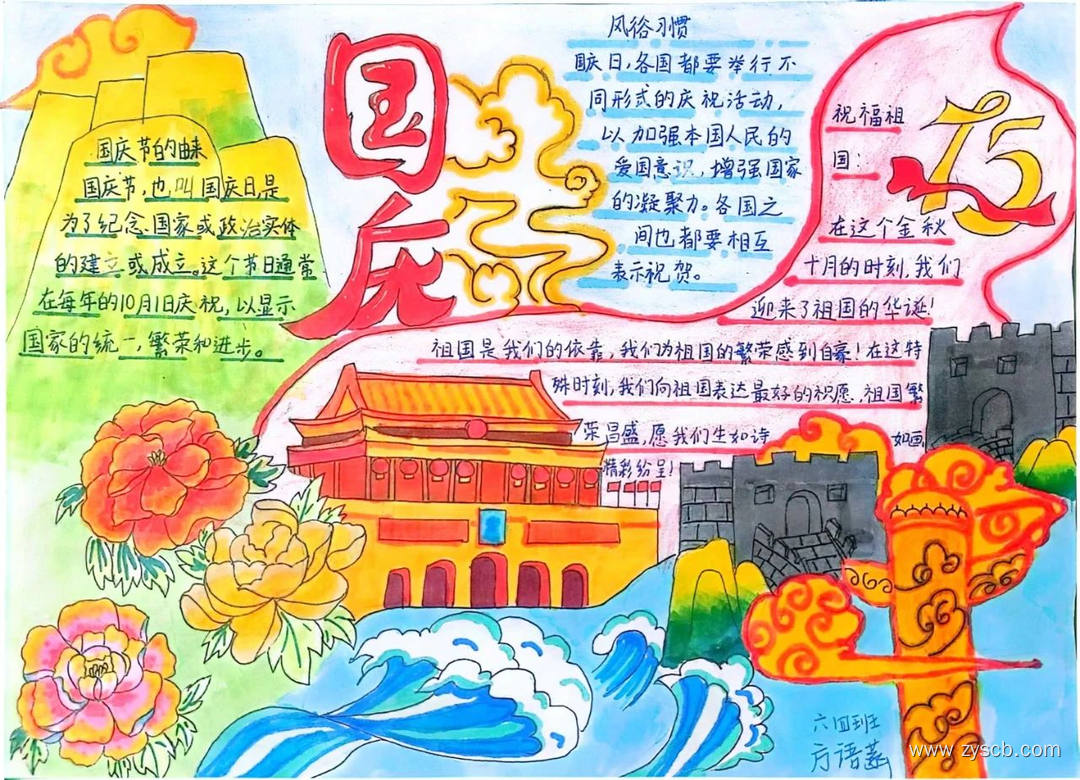 国庆
国庆节的由来
国庆节,也叫国庆日,是
为了纪念国家或政治实体
的建立或成立。这个节日通常
在每年的10月1日庆祝,以显示
国家的统一,繁荣和进步。
风俗习惯
国庆日,各国都要举行不
同形式的庆祝活动,
以加强本国人民的
爱国意识,增强国家
的凝聚力。各国之
间也都要相互
表示祝贺。
75
祝福祖
国:
在这个金秋
十月的时刻,我们
迎来了祖国的华诞!
祖国是我们的依靠,我们为祖国的繁荣感到自豪!在这特
殊时刻,我们向祖国表达最好的祝愿,祖国繁
荣昌盛,愿我们生如诗 如画
精彩纷呈!
六四班
方语菡
www.zyscb.com